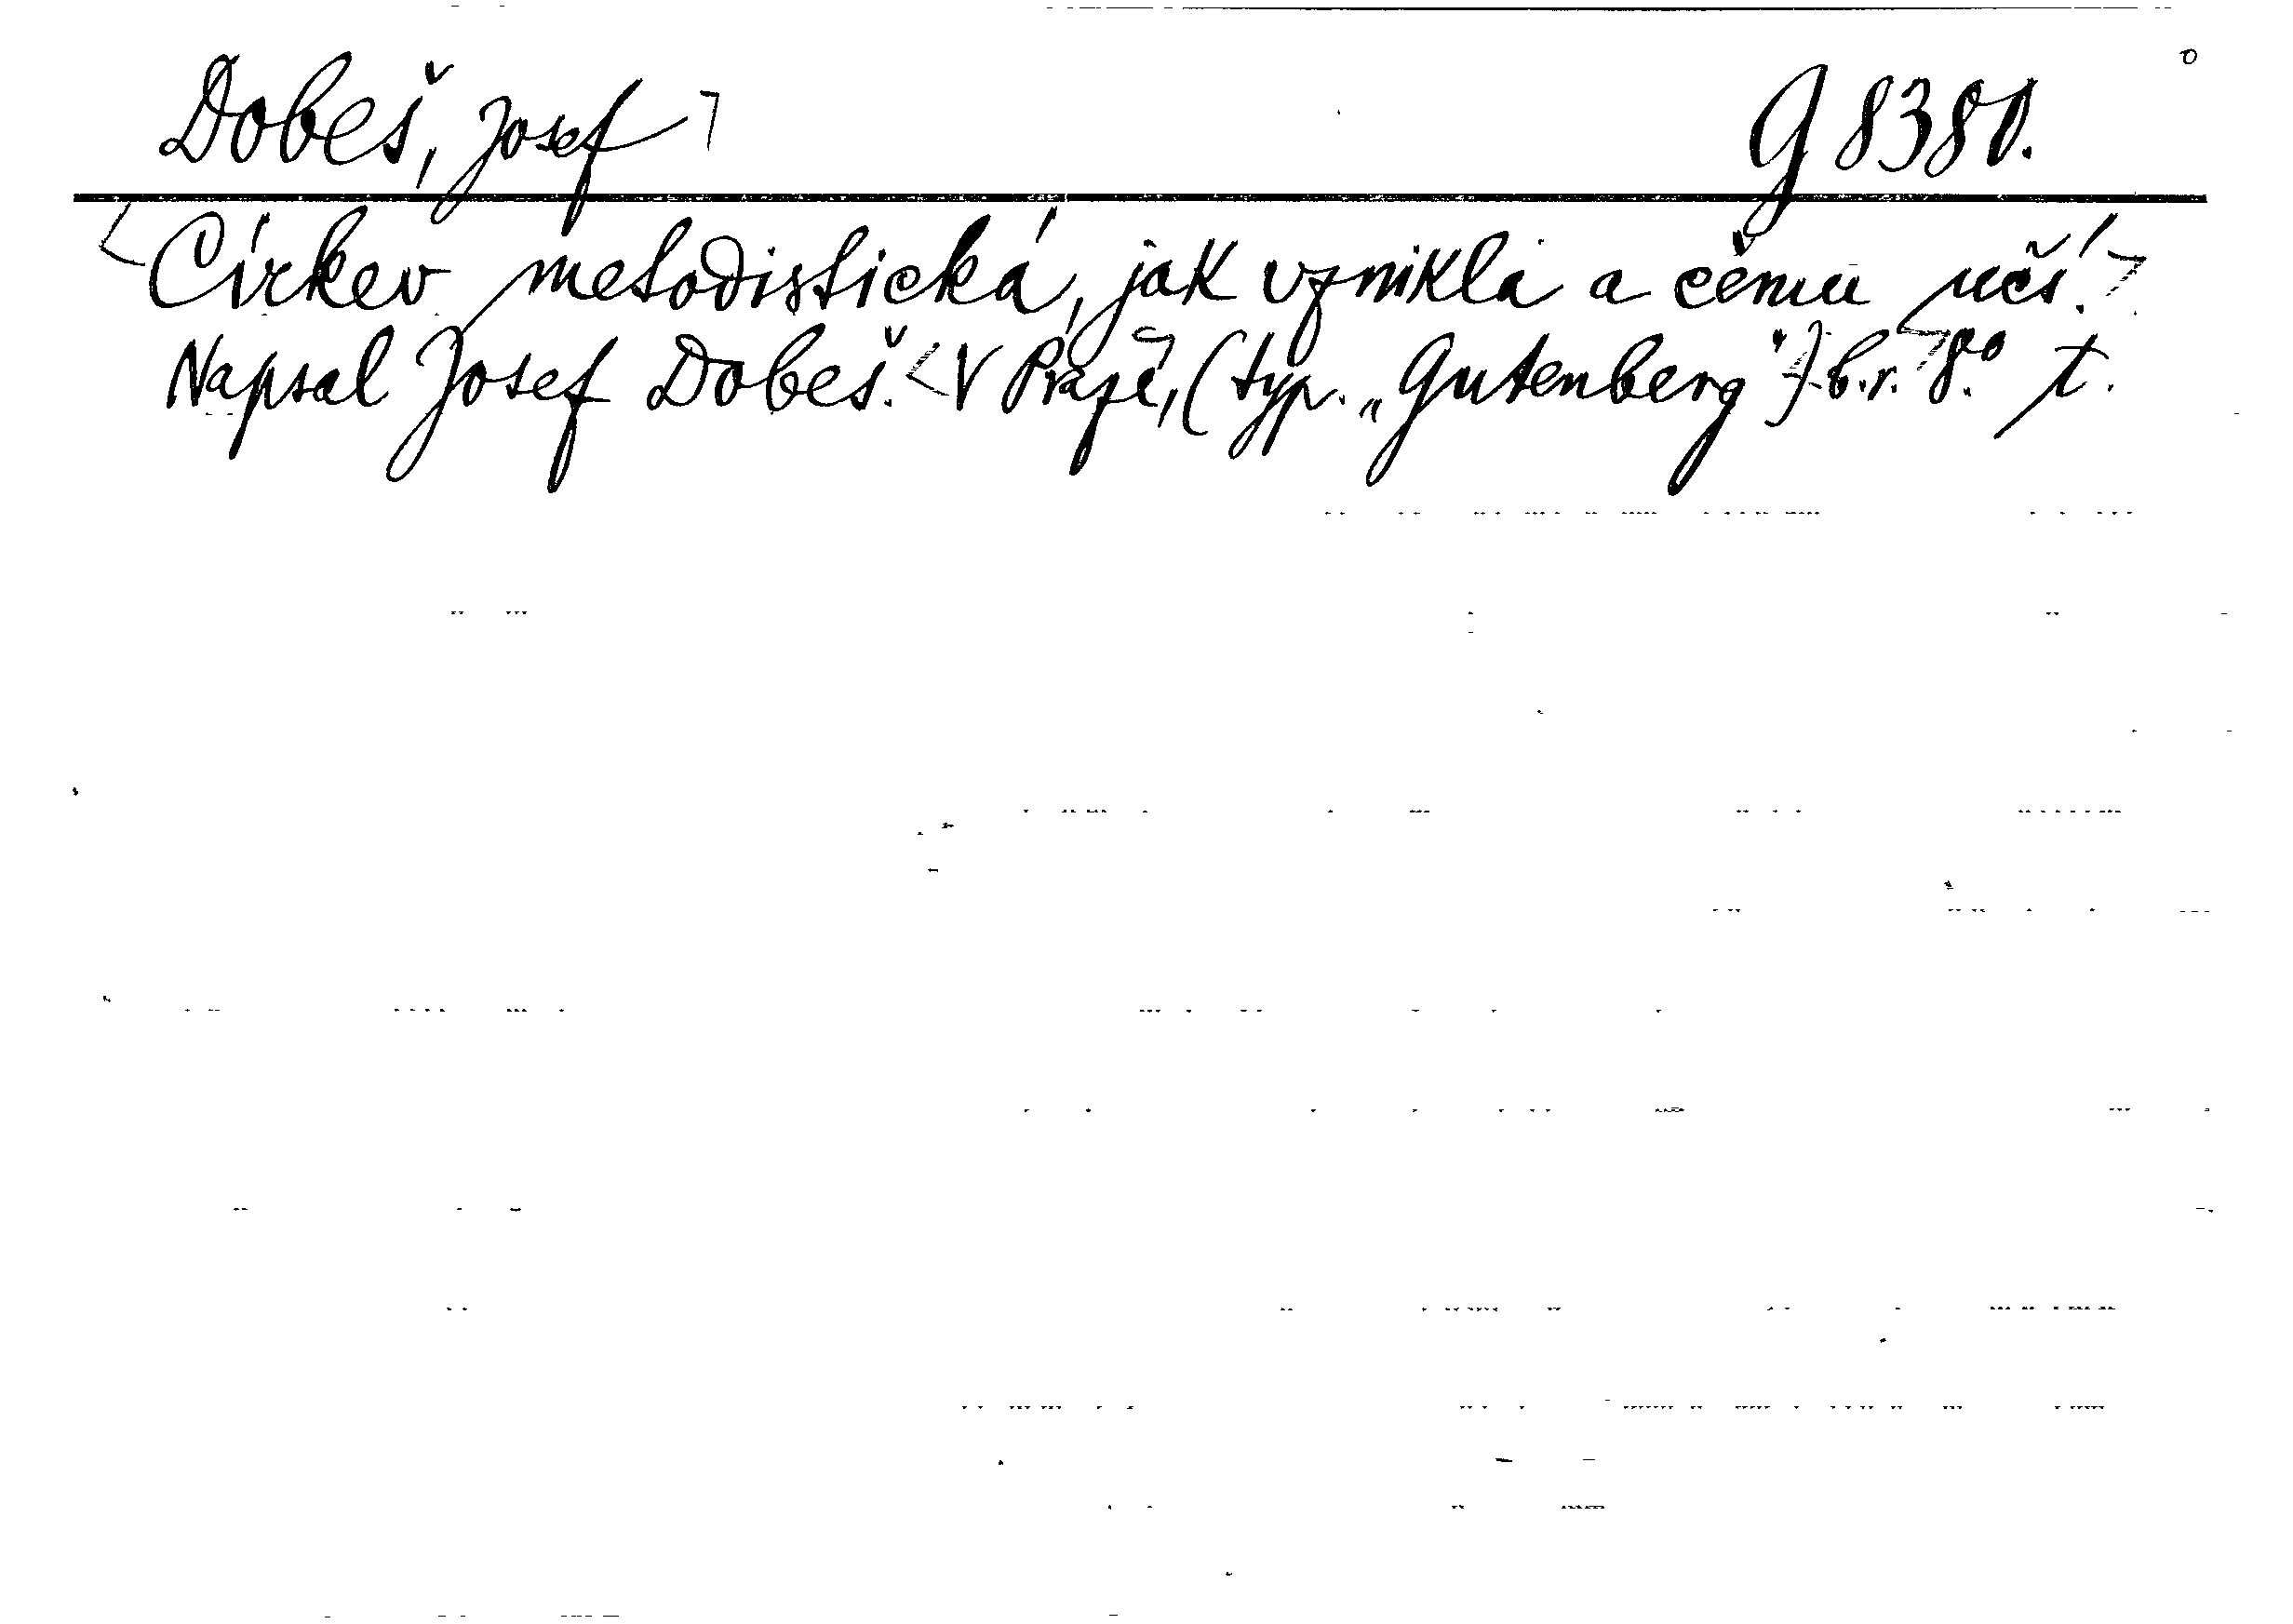 Dobeš, Josef G 8380.
Církev metodistická, jak vznikla a čemu učí.
Napsal Josef Dobeš. V Praze, (typ. „Gutenberg") b.r. 8.º t.